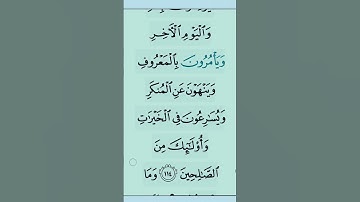 وَٱلْيَوْمِ ٱلْءَاخِرِ
وَيَأْمُرُونَ بِٱلْمَعْرُوفِ
وَيَنْهَوْنَ عَنِ ٱلْمُنكَرِ
وَيُسَٰرِعُونَ فِى ٱلْخَيْرَٰتِ
وَأُو۟لَٰٓئِكَ مِنَ
ٱلصَّٰلِحِينَ ١١٤ وَمَا